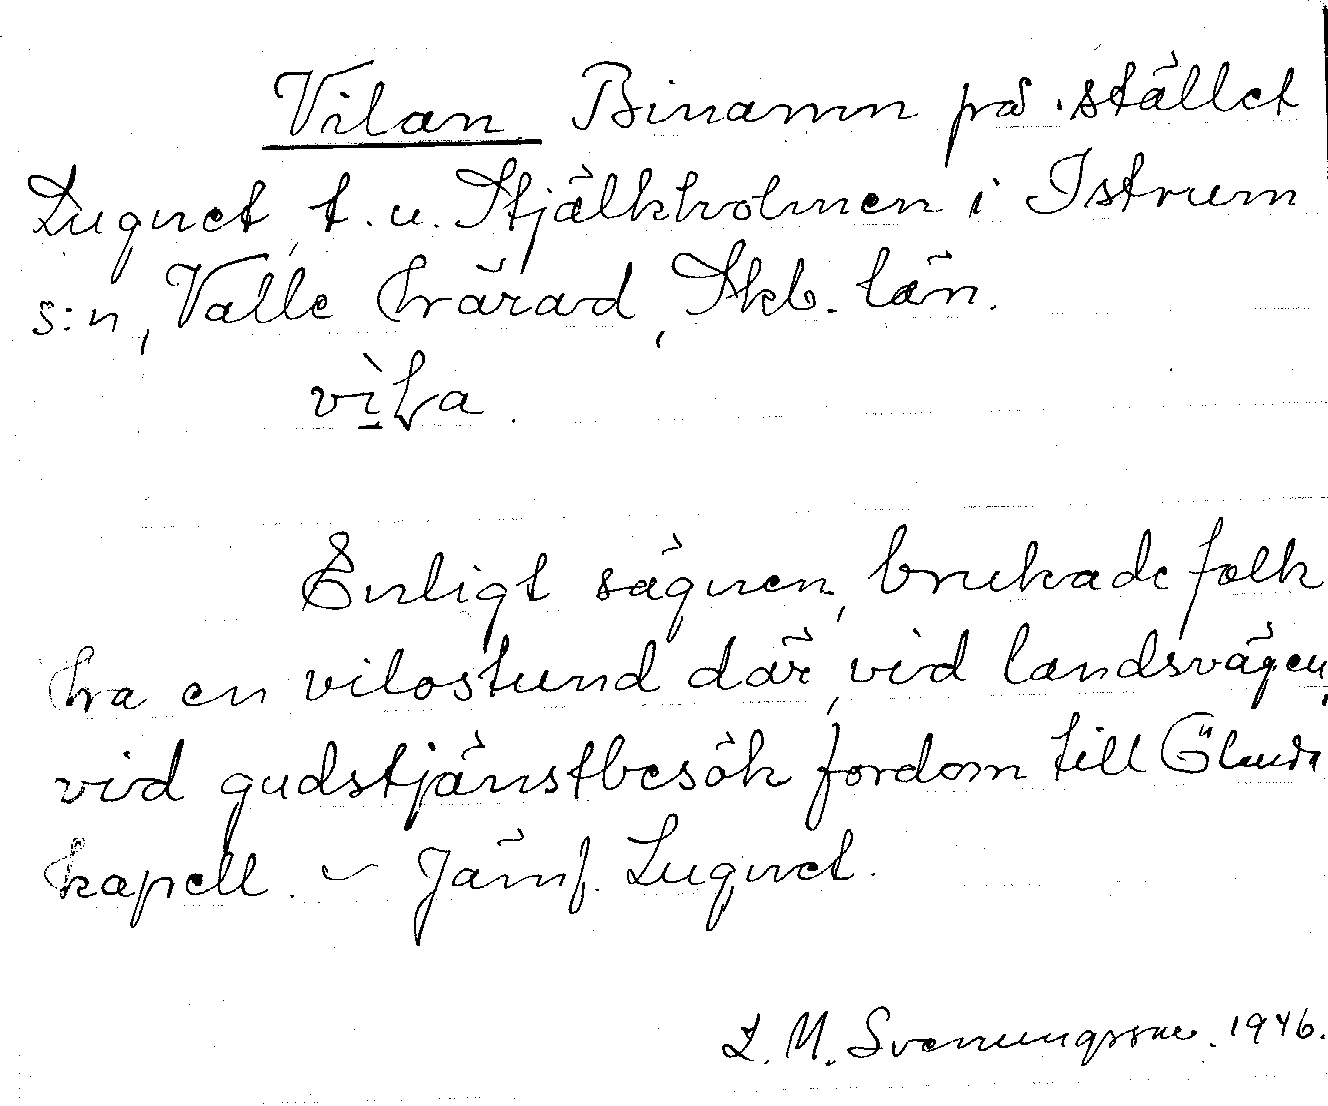 Vilan Binamn på stället
Lugnet, t. u. Stjälkholmen i Istrum
s:n, Valle härad, Skb. län.
vìla.
Enligt sägnen, brukade folk
ha en vilostund där, vid landsvägen,
vid gudstjänstbesök fordom till Ölanda
kapell. - Jämf. Lugnet.
L. M. Svenungsson. 1946.